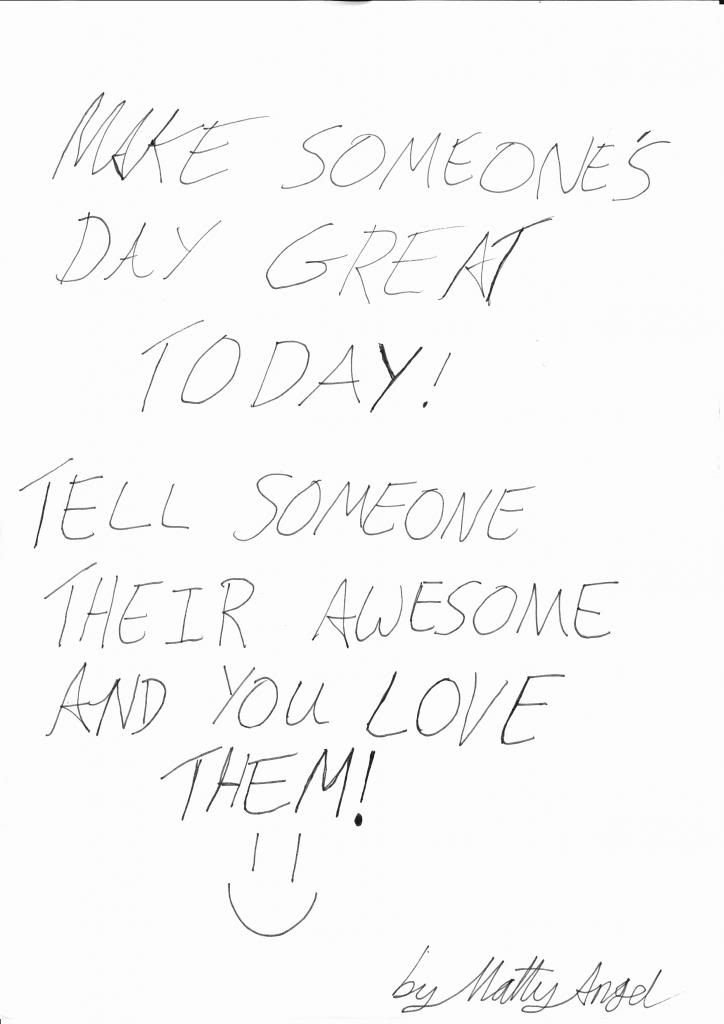 MAKE SOMEONE'S
DAY GREAT
TODAY!
TELL SOMEONE
THEIR AWESOME
AND YOU LOVE
THEM!
by Matty Angel